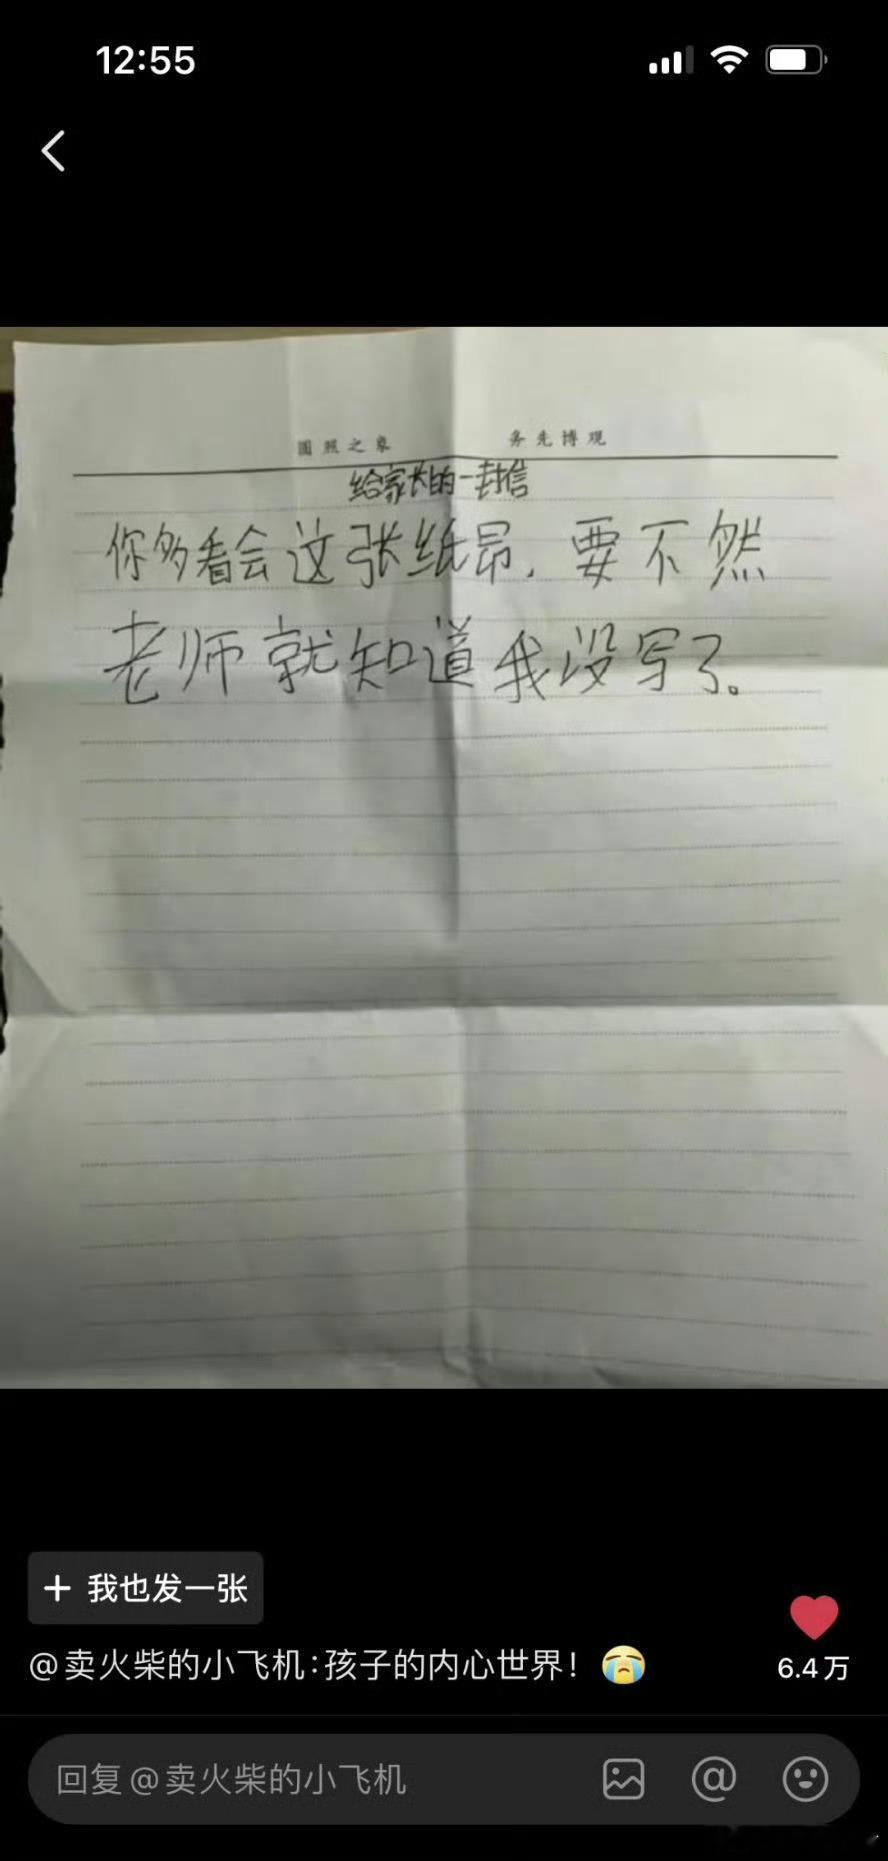 12:55
圆照之象 务先博观
给家长的一封信
你多看会这张纸昂，要不然
老师就知道我没写了。
+ 我也发一张
@卖火柴的小飞机:孩子的内心世界！😭
6.4万
回复@卖火柴的小飞机